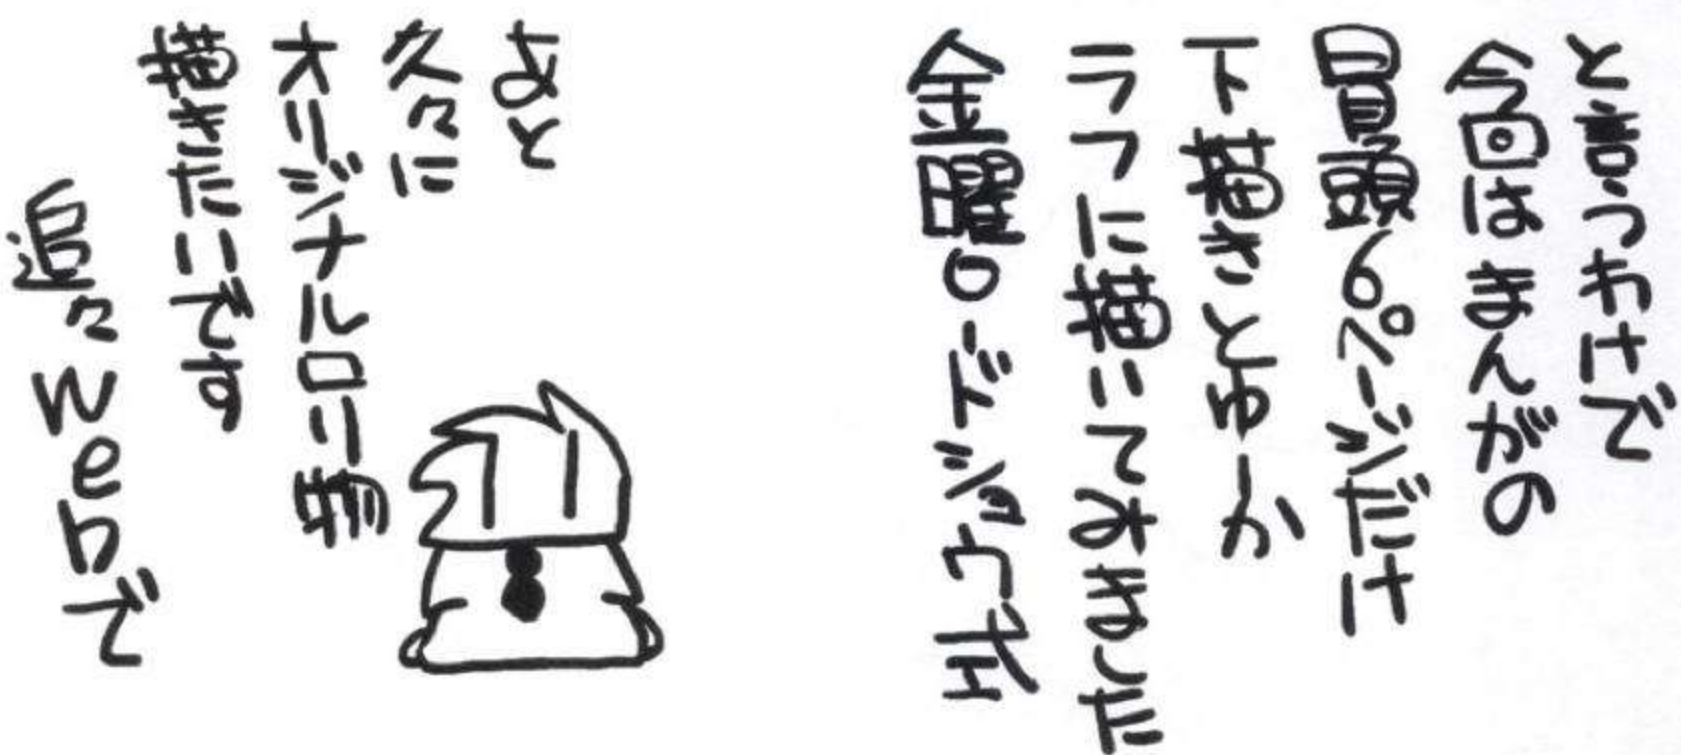 と言うわけで
今回はまんがの
冒頭6ページだけ
下描きとゆーか
ラフに描いてみました
金曜ロードショウ式
あと
久々に
オリジナルロリ物
描きたいです
追々webで